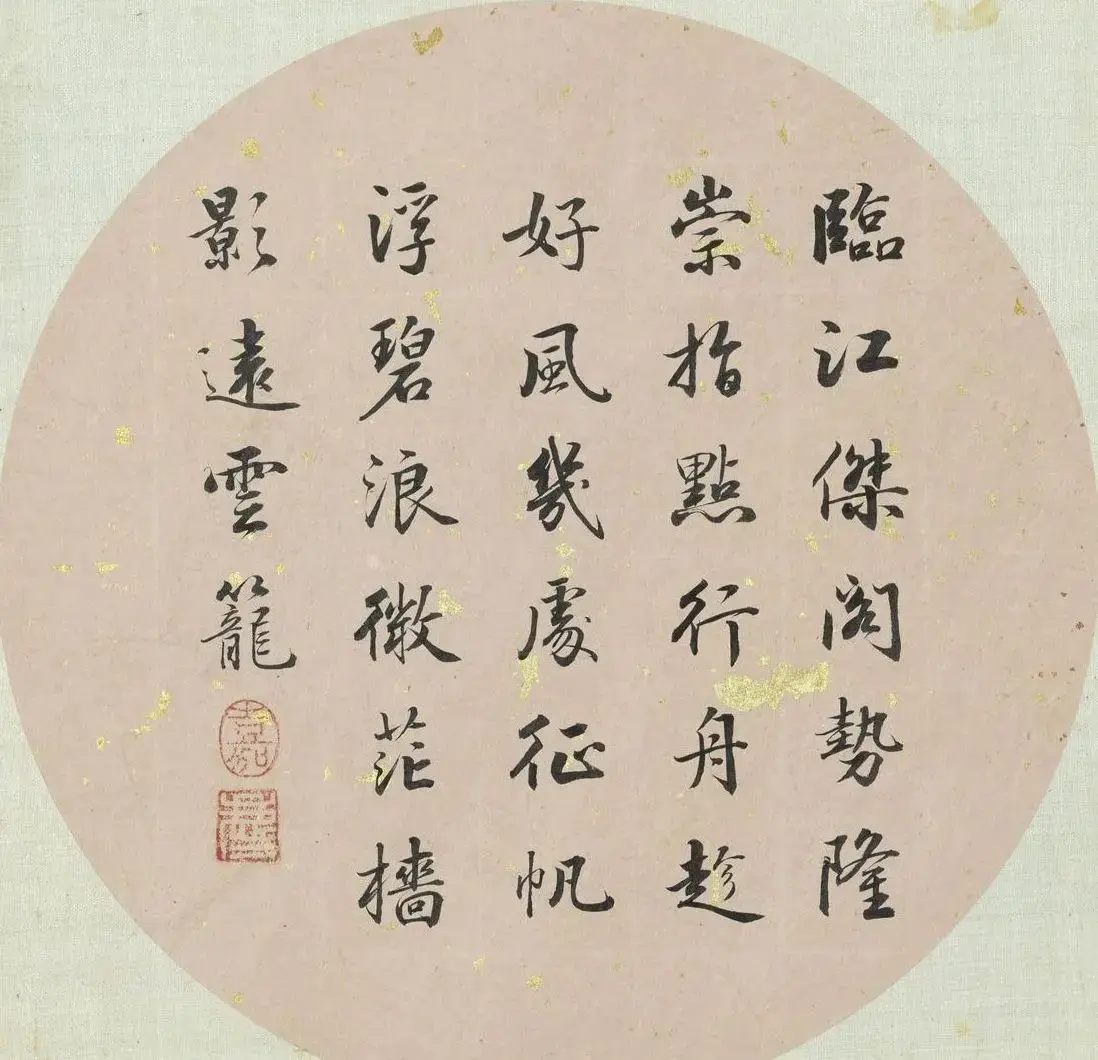 臨江傑閣勢隆
崇指點行舟趁
好風幾處征帆
浮碧浪微茫檣
影遠雲籠